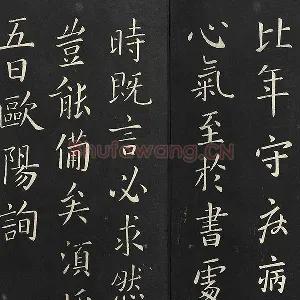 比年守疾病
心氣至於書處
時既言必求然
豈能備矣須
五日歐陽詢
shufawang.CN